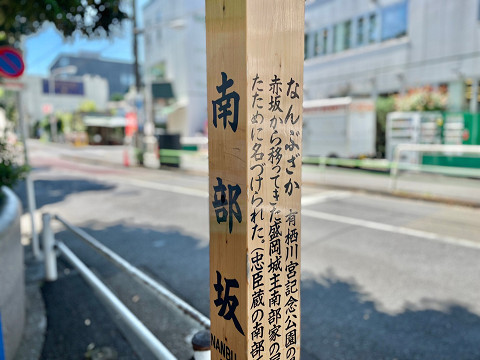 南部坂
NANBU
なんぶざか 有栖川宮記念公園の
赤坂から移ってきた盛岡城主南部家の
たために名づけられた。(忠臣蔵の南部